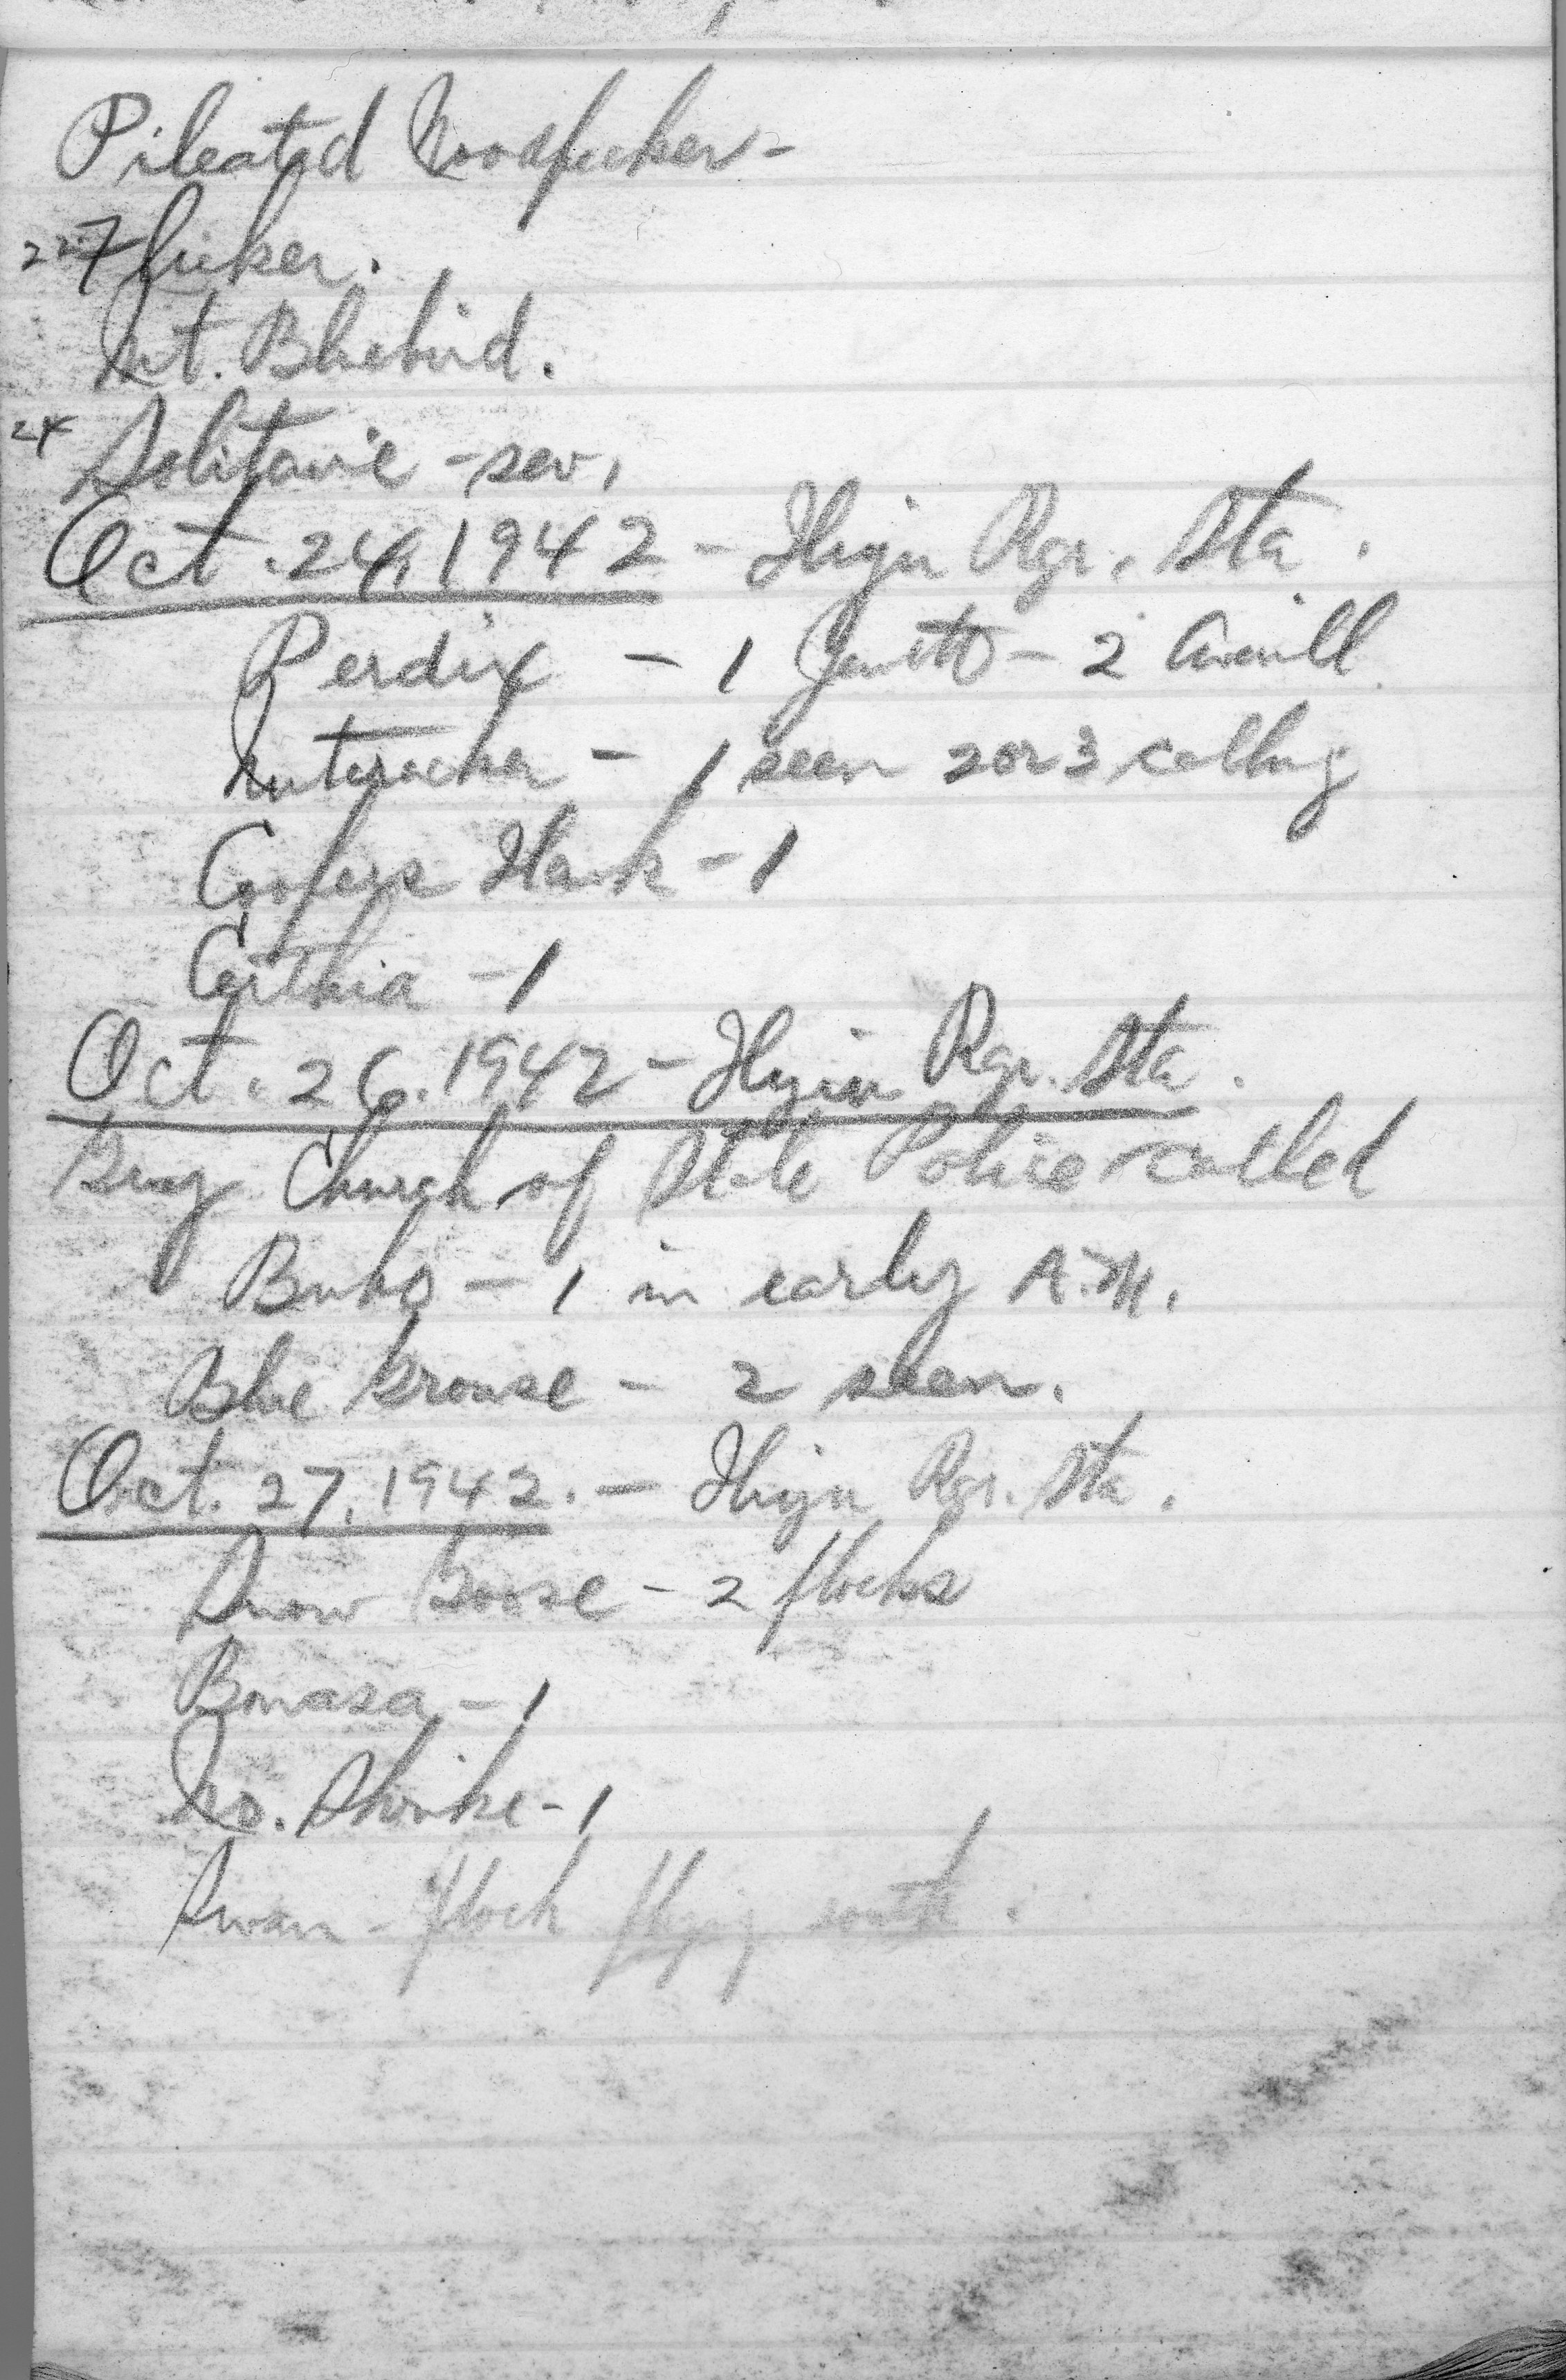 Pileated Woodpecker -
22 Flicker.
Mt. Bluebird.
24 Solitaire - sev.
Oct. 24, 1942 - Flyin Rgr. Sta.
Perdix - 1 Jewett - 2 Averill
Nutcracker - 1 seen 2 or 3 calling
Coopers Hawk - 1
Certhia - 1
Oct. 26, 1942 - Rgr. Sta.
Church of State Police called
Bubo - 1 in early A.M.
Blue Grouse - 2 seen.
Oct. 27, 1942. - Rgr. Sta.
Snow Goose - 2 flocks
Bonasa - 1
No. Shrike - 1
Swan - flock flying south.